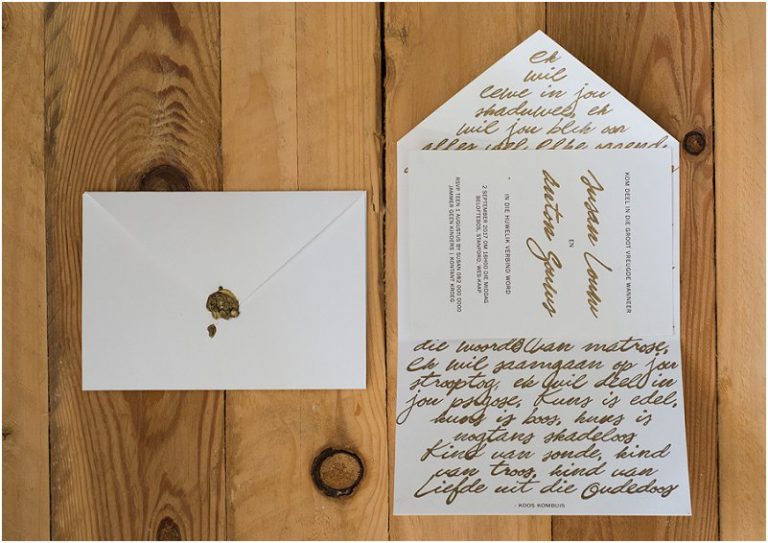 Ek
wil
lewe in jou
skaduwee, ek
wil jou blik
KOM DEEL IN DIE GROOT VREUGDE WANNEER
Susan Louw
EN
Anton Gouws
IN DIE HUWELIK VERBING WORD
2 SEPTEMBER 2017 OM 16H00 DIE MIDDAG
BELOFTEBOS, STANFORD, WES-KAAP.
RSVP TEEN 1 AUGUSTUS BY SUSAN 082 000 0000
JAMMER GEEN KINDERS | KONTANT KROEG
die woorde van matrose,
Ek wil saamgaan op jou
strooptog, ek wil deel in
jou psigose, Kuns is edel,
kuns is boos, kuns is
nogtans skadeloos
Kind van sonde, kind
van troos, kind van
Liefde uit die Oudedoos
- KOOS KOMBUIS